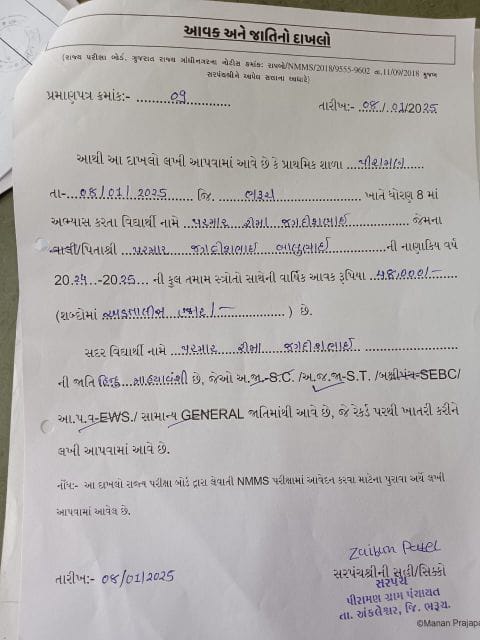 આવક અને જાતિનો દાખલો
(રાજ્ય પરીક્ષા બોર્ડ, ગુજરાત રાજ્ય ગાંધીનગરના નોટીસ ક્રમાંક: રાપબો/NMMS/2018/9555-9602 તા.11/09/2018 મુજબ
સરપંચશ્રીને આપેલ સત્તાના આધારે)
પ્રમાણપત્ર ક્રમાંક:- 09
તારીખ:- 08/01/2025
આથી આ દાખલો લખી આપવામાં આવે છે કે પ્રાથમિક શાળા પીરામન
તા- 08/01/2025 જિ. ભરૂચ ખાતે ધોરણ 8 માં
અભ્યાસ કરતા વિદ્યાર્થી નામે પરમાર રીમા જગદીશભાઈ જેમના
વાલી/પિતાશ્રી પરમાર જગદીશભાઈ બાબુભાઈ ની નાણાકિય વર્ષ
20.24..-20.25... ની કુલ તમામ સ્ત્રોતો સાથેની વાર્ષિક આવક રૂપિયા 48,000/-
(શબ્દોમાં અડતાલીસ હજાર/-) છે.
સદર વિદ્યાર્થી નામે પરમાર રીમા જગદીશભાઈ
ની જાતિ હિન્દુ છે, જેઓ અ.જા-S.C. /અ.જ.જા-S.T. /બક્ષીપંચ-SEBC/
આ.પ.વ-EWS./ સામાન્ય GENERAL જાતિમાંથી આવે છે, જે રેકર્ડ પરથી ખાતરી કરીને
લખી આપવામાં આવે છે.
નોંધ:- આ દાખલો રાજ્ય પરીક્ષા બોર્ડ દ્વારા લેવાતી NMMS પરીક્ષામાં આવેદન કરવા માટેના પુરાવા અર્થે લખી
આપવામાં આવેલ છે.
Zaibun Patel
તારીખ:- 08/01/2025
સરપંચશ્રીની સહી/સિક્કો
સરપંચ
પીરામણ ગ્રામ પંચાયત
તા. અંકલેશ્વર, જિ. ભરૂચ.
©Manan Prajapa